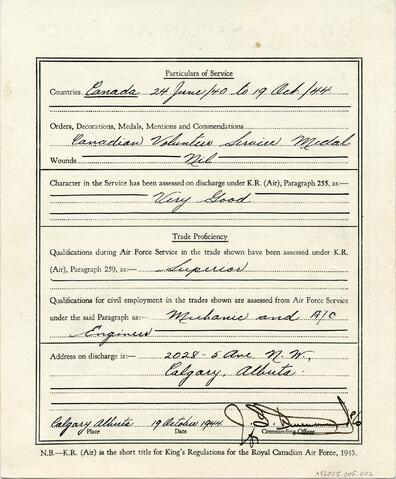 Particulars of Service
Countries Canada 24 June/40 to 19 Oct./44
Orders, Decorations, Medals, Mentions and Commendations
Canadian Volunteer Service Medal
Wounds Nil
Character in the Service has been assessed on discharge under K.R. (Air), Paragraph 255, as:—
Very Good
Trade Proficiency
Qualifications during Air Force Service in the trade shown have been assessed under K.R.
(Air), Paragraph 259, as:— Superior
Qualifications for civil employment in the trades shown are assessed from Air Force Service
under the said Paragraph as:— Mechanic and A/C
Engineer
Address on discharge is:— 2028 - 5 Ave. N.W.,
Calgary, Alberta.
Calgary Alberta 19 October 1944
Place Date Commanding Officer
N.B.—K.R. (Air) is the short title for King's Regulations for the Royal Canadian Air Force, 1943.